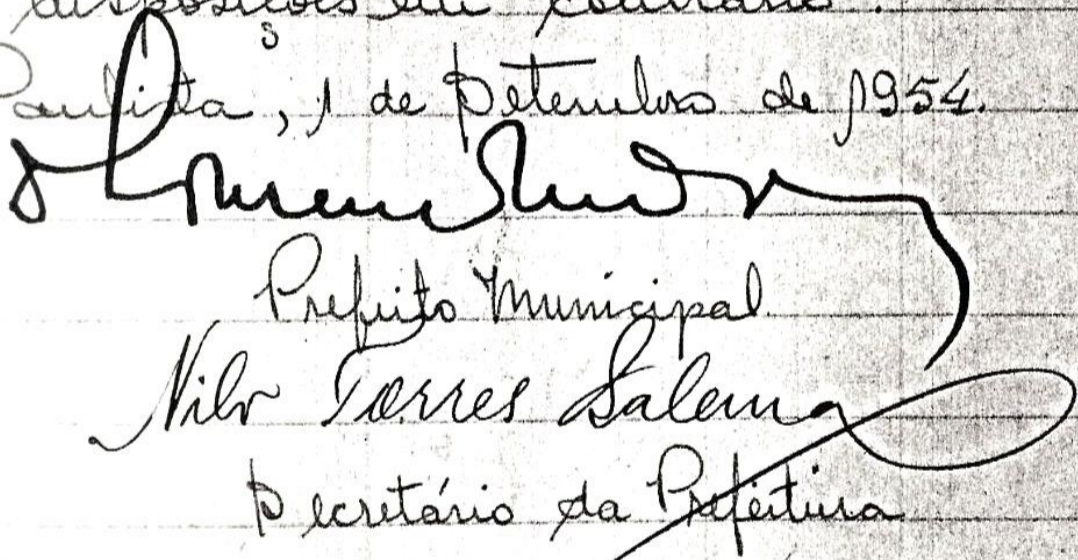 disposições em contrário.
Paulista, 1 de Setembro de 1954.
Prefeito Municipal
Nilo Torres Salema
Secretário da Prefeitura